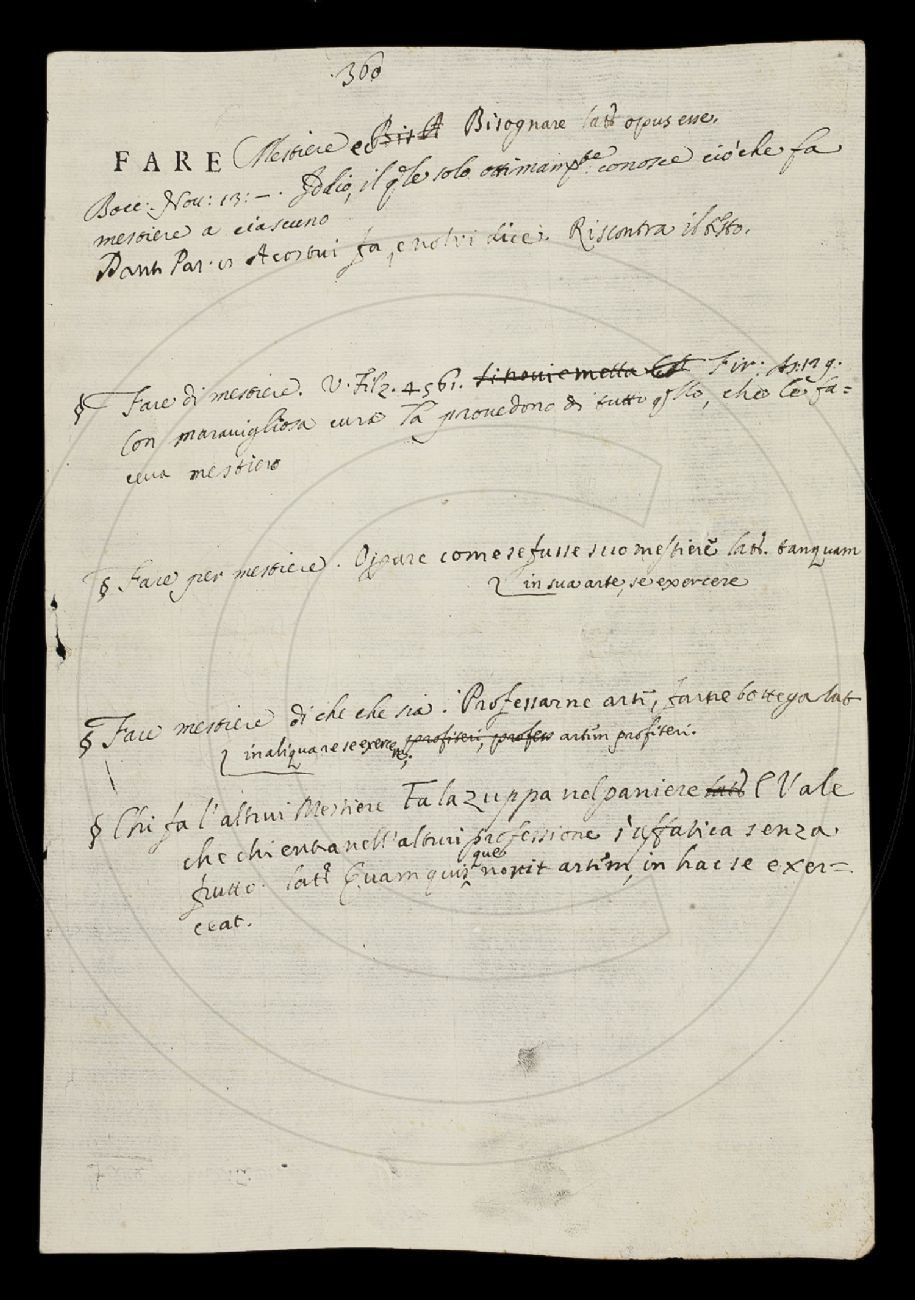 360
FARE Mestiere Bisognare latt. opus esse.
Bocc. Nov: 13: –. Iddio, il qle solo ottimampte conosce ciò che fa
mestiere a ciascuno
Dant Par. A costui fa, e nol vi dice. Riscontra il tsto.
§ Fare di mestiere. V. Filz. 4561. si troui e metta Fir: As. 129.
Con maravigliosa cura la provedono di tutto qsllo, che le fa=
ceva mestiero
§ Fare per mestiere. Opare come se fusse suo mestiere latt. tanquam
in sua arte, se exercere
§ Fare mestiere di che che sia: Professarne arte, farne bottega lat
in aliqua re se exercere; profiteri, profess artim profiteri.
§ Chi fa l'altrui Mestiere Fa la zuppa nel paniere latt Vale
che chi entra nell'altrui professione s'affatica senza
frutto. latt Quam quisque novit artim, in hac se exer=
ceat.